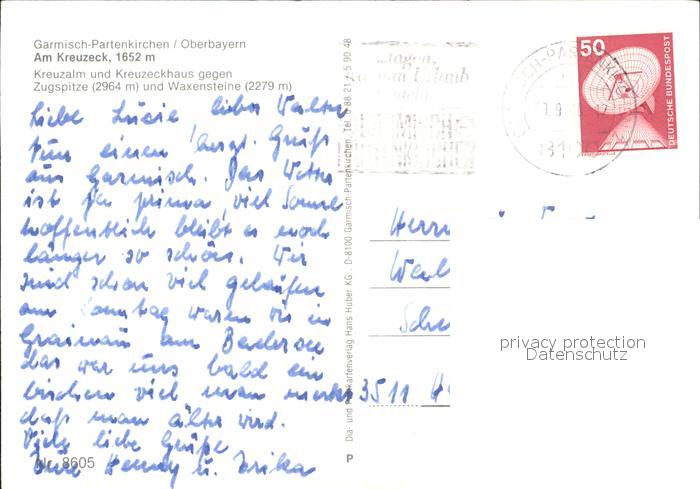 Garmisch-Partenkirchen / Oberbayern
Am Kreuzeck, 1652 m
Kreuzalm und Kreuzeckhaus gegen
Zugspitze (2964 m) und Waxensteine (2279 m)
Liebe Lucie lieber Walter
Nun einen herzl. Gruß
aus Garmisch. Das Wetter
ist ja prima, viel Sonne
hoffentlich bleibt es noch
länger so schön. Wir
sind schon viel gelaufen
am Sonntag waren wir in
Grainau am Badersee
das war uns bald ein
bischen viel man merkt
daß man älter wird.
Viele liebe Grüße
Eure Henny u. Erika
Nr. 8605
Dia- und Postkartenverlag Hans Huber KG · D-8100 Garmisch-Partenkirchen, Tel. 0 88 21 / 5 90 48
P
Urlaub
50
DEUTSCHE BUNDESPOST
8100
Herrn
3511
privacy protection
Datenschutz